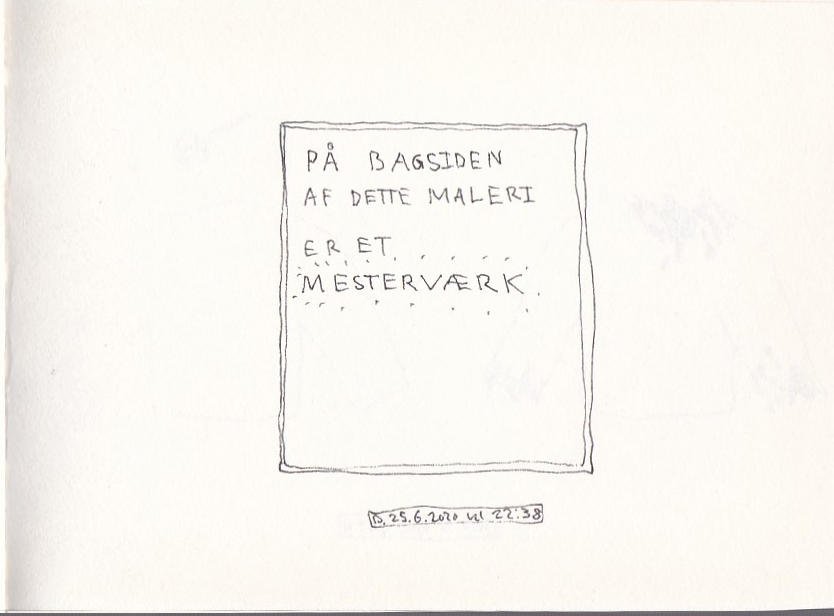 PÅ BAGSIDEN
AF DETTE MALERI
ER ET
MESTERVÆRK
D. 25.6.2020 kl 22:38